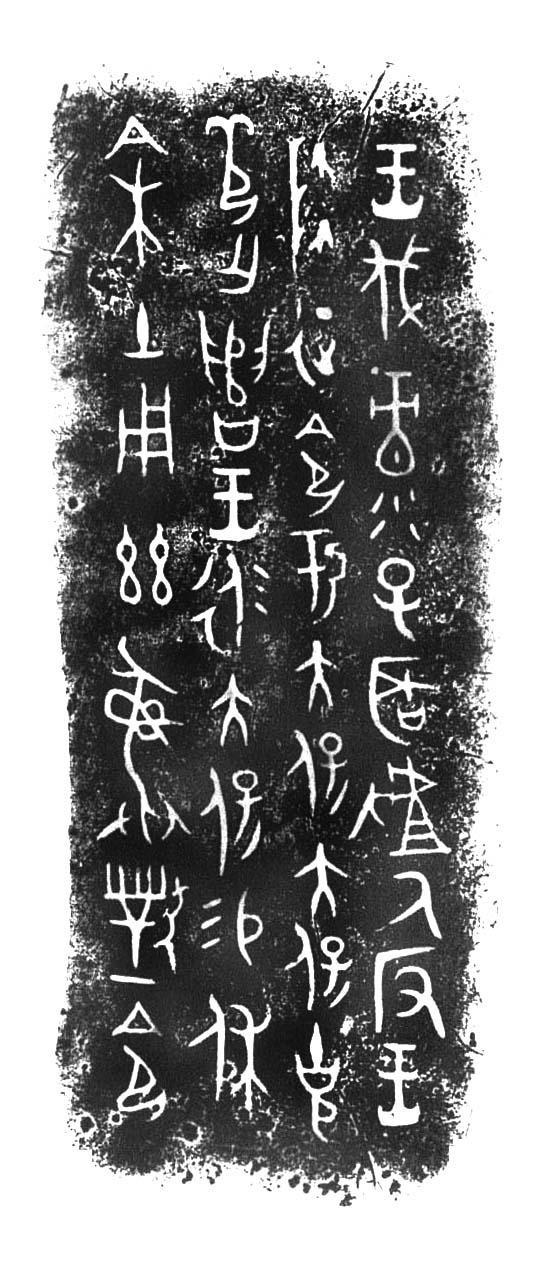 王伐彔子𦔻𠭯氒反王
降征令于大保大保克
芍亡遣王永大保易休
余土用茲彝對令